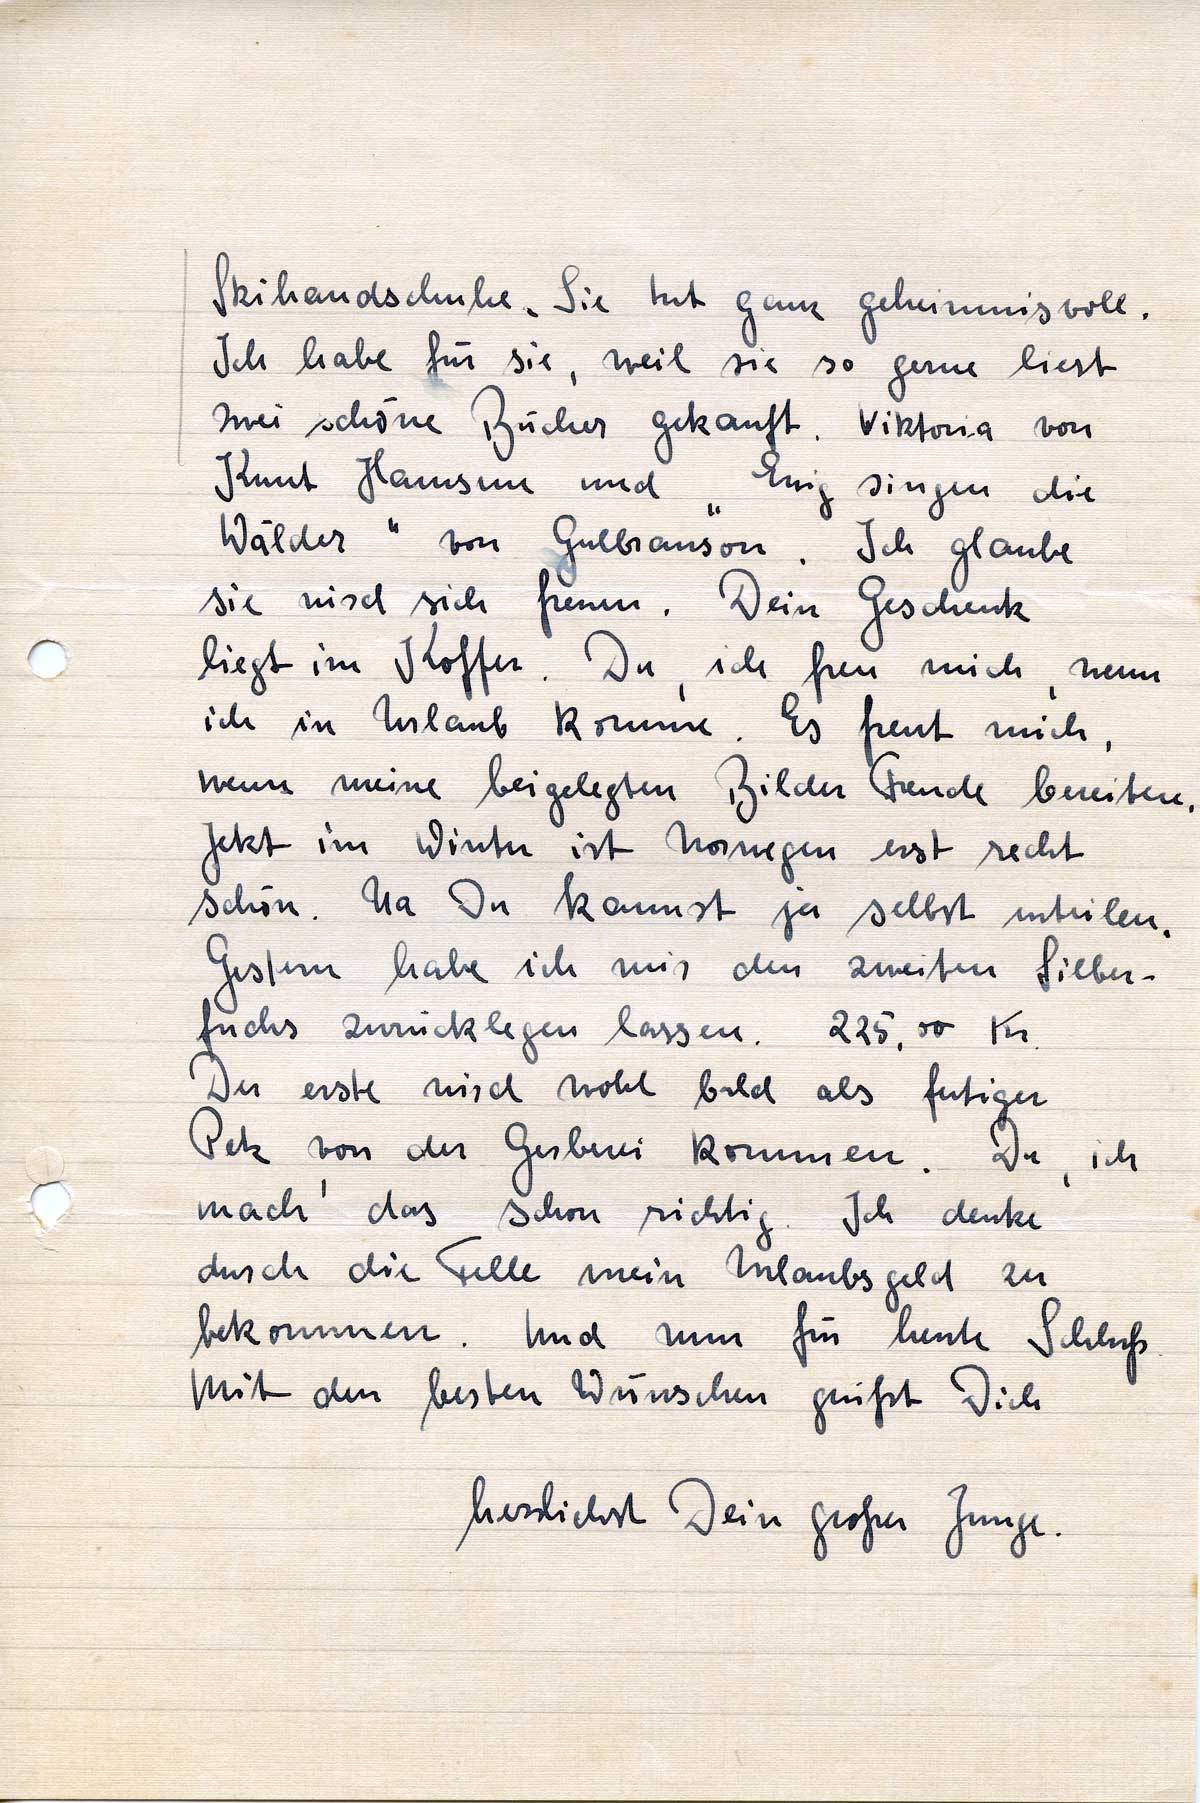 Skihandschuhe. Sie tut ganz geheimnisvoll.
Ich habe für sie, weil sie so gerne liest
zwei schöne Bücher gekauft. Viktoria von
Knut Hamsun und „Ewig singen die
Wälder“ von Gulbranson. Ich glaube
sie wird sich freuen. Dein Geschenk
liegt im Koffer. Du, ich freu mich, wenn
ich in Urlaub komme. Es freut mich,
wenn meine beigelegten Bilder Freude bereiten.
Jetzt im Winter ist Norwegen erst recht
schön. Na Du kannst ja selbst urteilen.
Gestern habe ich mir den zweiten Silber-
fuchs zurücklegen lassen. 225,00 Kr.
Der erste wird wohl bald als fertiger
Pelz von der Gerberei kommen. Du, ich
mach' das schon richtig. Ich denke
durch die Felle mein Urlaubsgeld zu
bekommen. Und nun für heute Schluß.
Mit den besten Wünschen grüßt Dich
herzlichst Dein großer Junge.